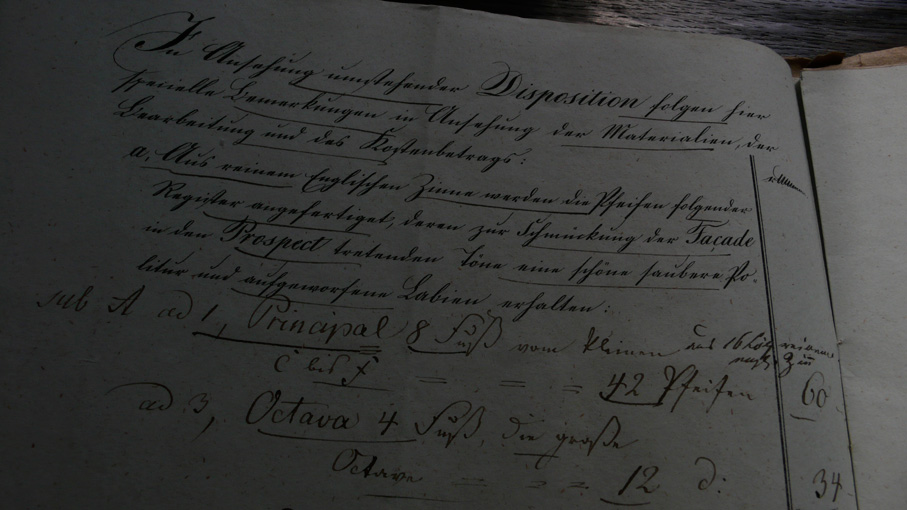 In Ansehung umstehender Disposition folgen hier
specielle Bemerkungen in Ansehung der Materialien, der
Bearbeitung und des Kostenbetrags:
a, Aus reinem Englischen Zinne werden die Pfeifen folgender
Register angefertiget, deren zur Schmückung der Façade
in den Prospect tretenden Töne eine schöne saubere Po-
litur und aufgeworfene Labien erhalten:
sub A ad 1, Principal 8 Fuß vom kleinen
C bis f = = = 42 Pfeifen 60
ad 3, Octava 4 Fuß, die große
Octave = = = 12 d: 34